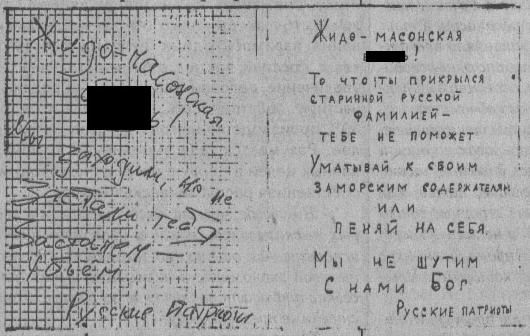 Жидо-масонская
!
Мы
заходили, но не
Застали тебя
Застанем —
убьём
Русские патриоты
Жидо-масонская
!
То что ты прикрылся
старинной русской
фамилией —
тебе не поможет
Уматывай к своим
заморским содержателям
или
пеняй на себя.
Мы не шутим
С нами Бог
Русские патриоты